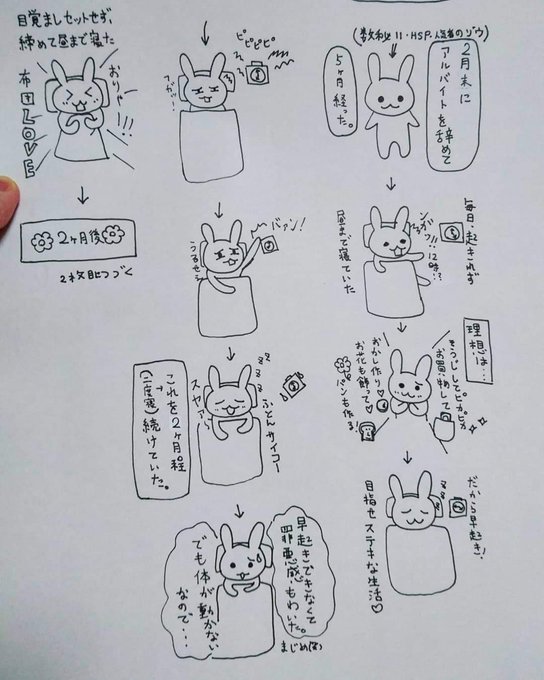 (数秘11・HSP・人見知りのゾウ)
2月末に
アルバイトを辞めて
5ヶ月経った。
毎日・起きれず
ンガッ!!12時!?
昼まで寝ていた
理想は…
そうじしてピカピカ
お買い物して
おかし作り♡
お花も飾って♡
パンも作る!
だから早起き!
zzzz
目指せステキな生活♡
ピピピピ
フガ!
バァン!
うるせっ
zzzz
ふとんサイコー
スヤァ…
これを2ヶ月程
(二度寝)続けていた。
早起きできなくて
罪悪感もわいた。
まじめ(笑)
でも体が動かない
なので…
目覚ましセットせず、
締めて昼まで寝た
おりゃー!!!
布団LOVE
2ヶ月後
2枚目つづく